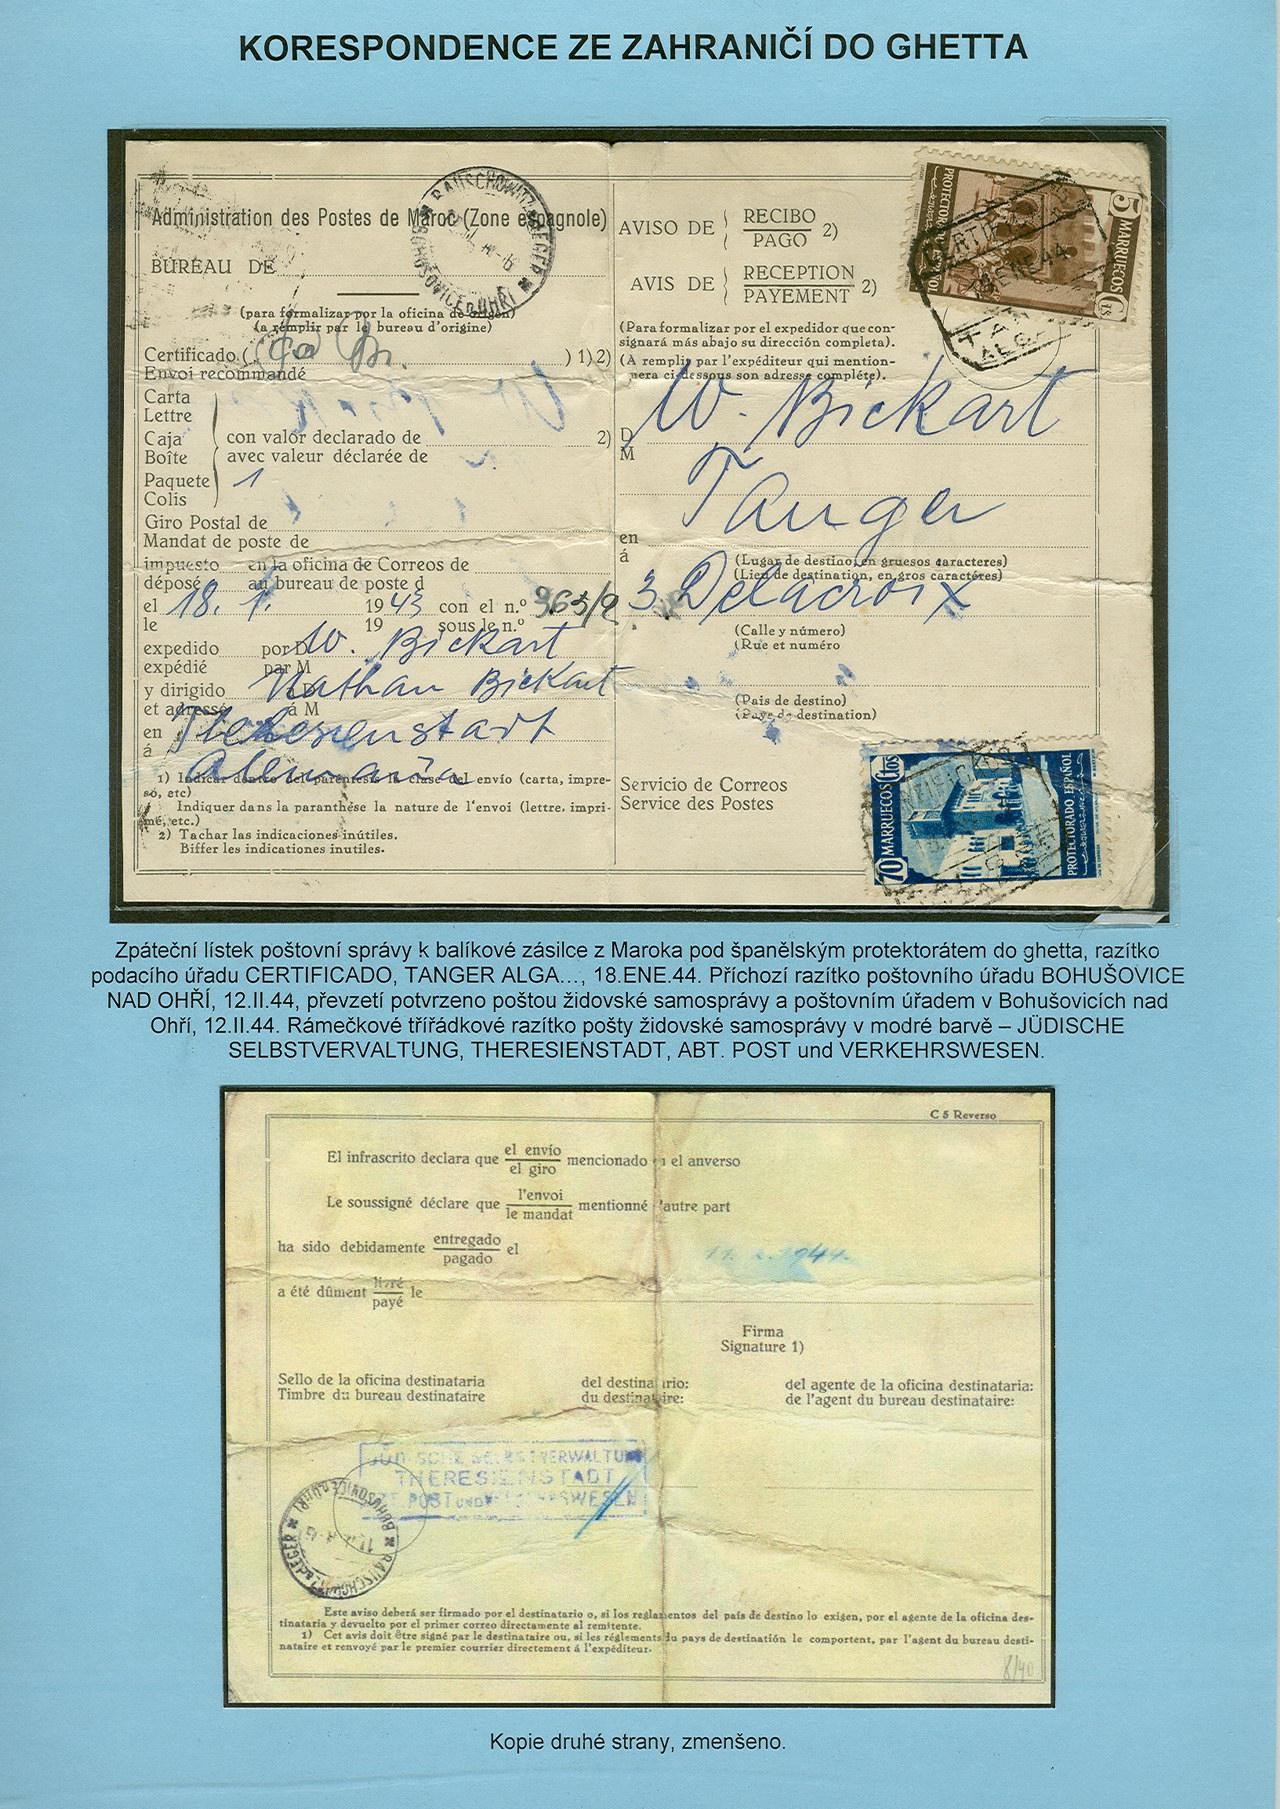 KORESPONDENCE ZE ZAHRANIČÍ DO GHETTA
Administration des Postes de Maroc (Zone espagnole)
BUREAU DE
RAUSCHOWITZ a.d. EGER
BOHUŠOVICE n. OHŘÍ
(para formalizar por la oficina de origen)
(a remplir par le bureau d'origine)
Certificado ( ) 1) 2)
Envoi recommandé
Carta
Lettre
Caja con valor declarado de 2)
Boîte avec valeur déclarée de
Paquete 1
Colis
Giro Postal de
Mandat de poste de
impuesto en la oficina de Correos de
déposé au bureau de poste d
el 18. 1. 1943 con el n.º 963/9
le 19 sous le n.º
expedido por D W. Bickart
expédié par M
y dirigido Nathan Bickart
et adressé á M
en Theresienstadt
á
Alemaña
1) Indicar dentro del paréntesis la clase del envío (carta, impre-
so, etc)
Indiquer dans la paranthése la nature de l'envoi (lettre, impri-
mé, etc.)
2) Tachar las indicaciones inútiles.
Biffer les indications inutiles.
AVISO DE RECIBO PAGO 2)
AVIS DE RECEPTION PAYEMENT 2)
(Para formalizar por el expedidor que con-
signará más abajo su dirección completa).
(A remplir par l'expéditeur qui mention-
nera ci-dessous son adresse complète).
D W. Bickart
M
Tanger
en
á
(Lugar de destino, en gruesos caracteres)
(Lieu de destination, en gros caractéres)
3 Delacroix
(Calle y número)
(Rue et numéro
(Pais de destino)
(Pays de destination)
Servicio de Correos
Service des Postes
5 MARRUECOS Cts
PROTECTORADO ESPAÑOL
18 ENE 44
70 MARRUECOS Cts
PROTECTORADO ESPAÑOL
Zpáteční lístek poštovní správy k balíkové zásilce z Maroka pod španělským protektorátem do ghetta, razítko
podacího úřadu CERTIFICADO, TANGER ALGA..., 18.ENE.44. Příchozí razítko poštovního úřadu BOHUŠOVICE
NAD OHŘÍ, 12.II.44, převzetí potvrzeno poštou židovské samosprávy a poštovním úřadem v Bohušovicích nad
Ohří, 12.II.44. Rámečkové třířádkové razítko pošty židovské samosprávy v modré barvě – JÜDISCHE
SELBSTVERVALTUNG, THERESIENSTADT, ABT. POST und VERKEHRSWESEN.
C 5 Reverso
El infrascrito declara que el envío el giro mencionado en el anverso
Le soussigné déclare que l'envoi le mandat mentionné l'autre part
ha sido debidamente entregado pagado el
a été dûment livré payé le
Firma
Signature 1)
Sello de la oficina destinataria del destinatario: del agente de la oficina destinataria:
Timbre du bureau destinataire du destinataire: de l'agent du bureau destinataire:
JÜDISCHE SELBSTVERWALTUNG
THERESIENSTADT
POST UND VERKEHRSWESEN
BOHUŠOVICE n. OHŘÍ
RAUSCHOWITZ a.d. EGER
Este aviso deberá ser firmado por el destinatario o, si los reglamentos del país de destino lo exigen, por el agente de la oficina des-
tinataria y devuelto por el primer correo directamente al remitente.
1) Cet avis doit être signé par le destinataire ou, si les réglements du pays de destinatión le comportent, par l'agent du bureau desti-
nataire et renvoyé par le premier courrier directement á l'expéditeur.
8/40
Kopie druhé strany, zmenšeno.